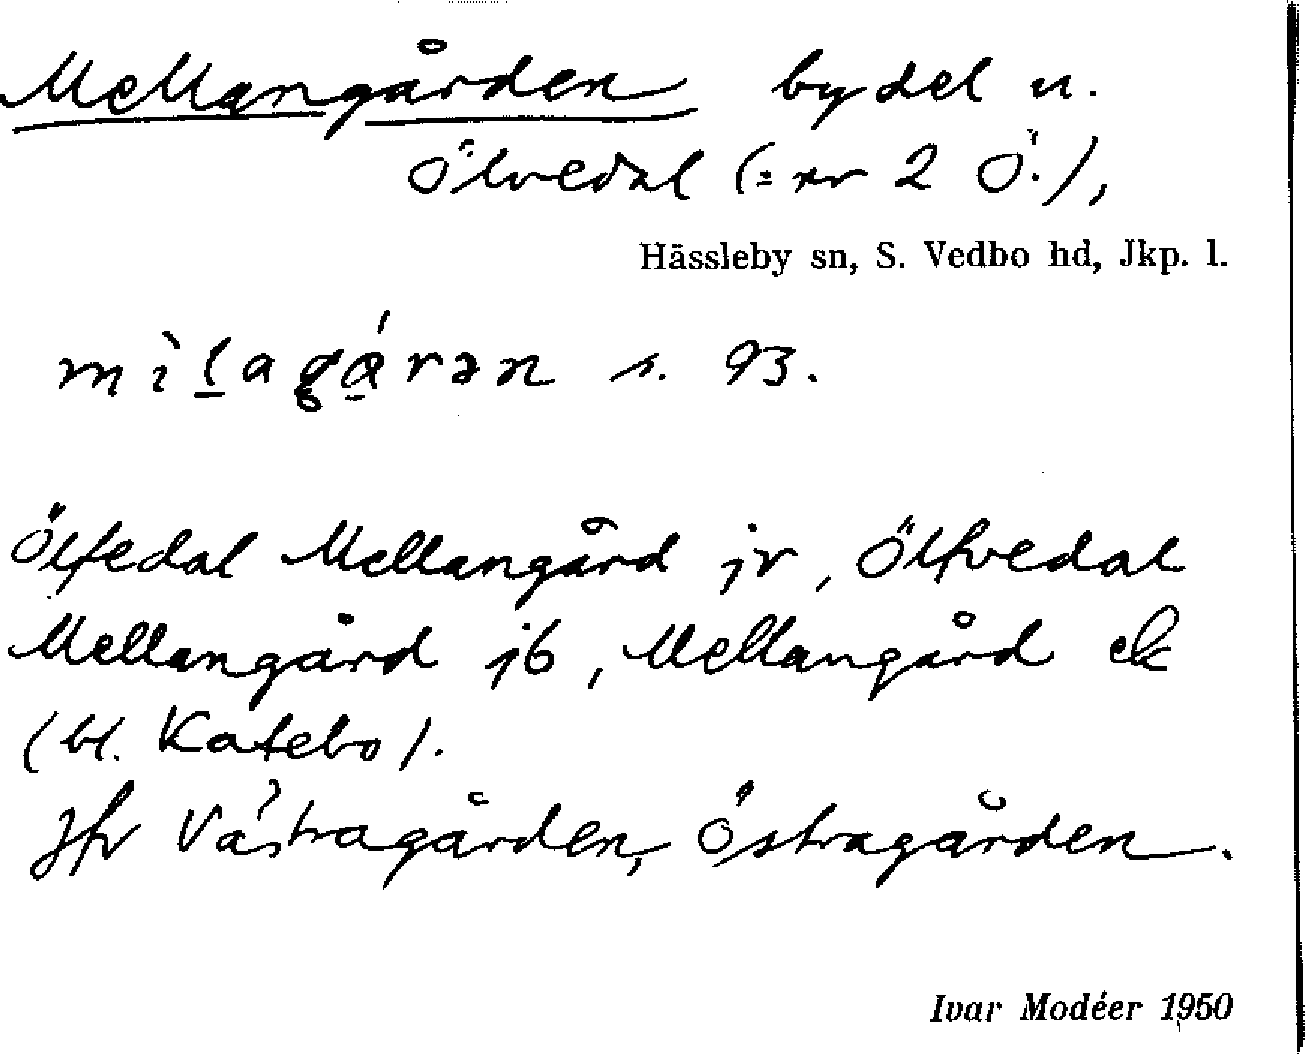 Mellangården bydel u.
Ölvedal (= nr 2 Ö.),
Hässleby sn, S. Vedbo hd, Jkp. l.
s. 93.
Ölfedal Mellangård jr, Ölfvedal
Mellangård jb, Mellangård ek
(bl. Katebo).
Jfr Västragården, Östragården.
Ivar Modéer 1950